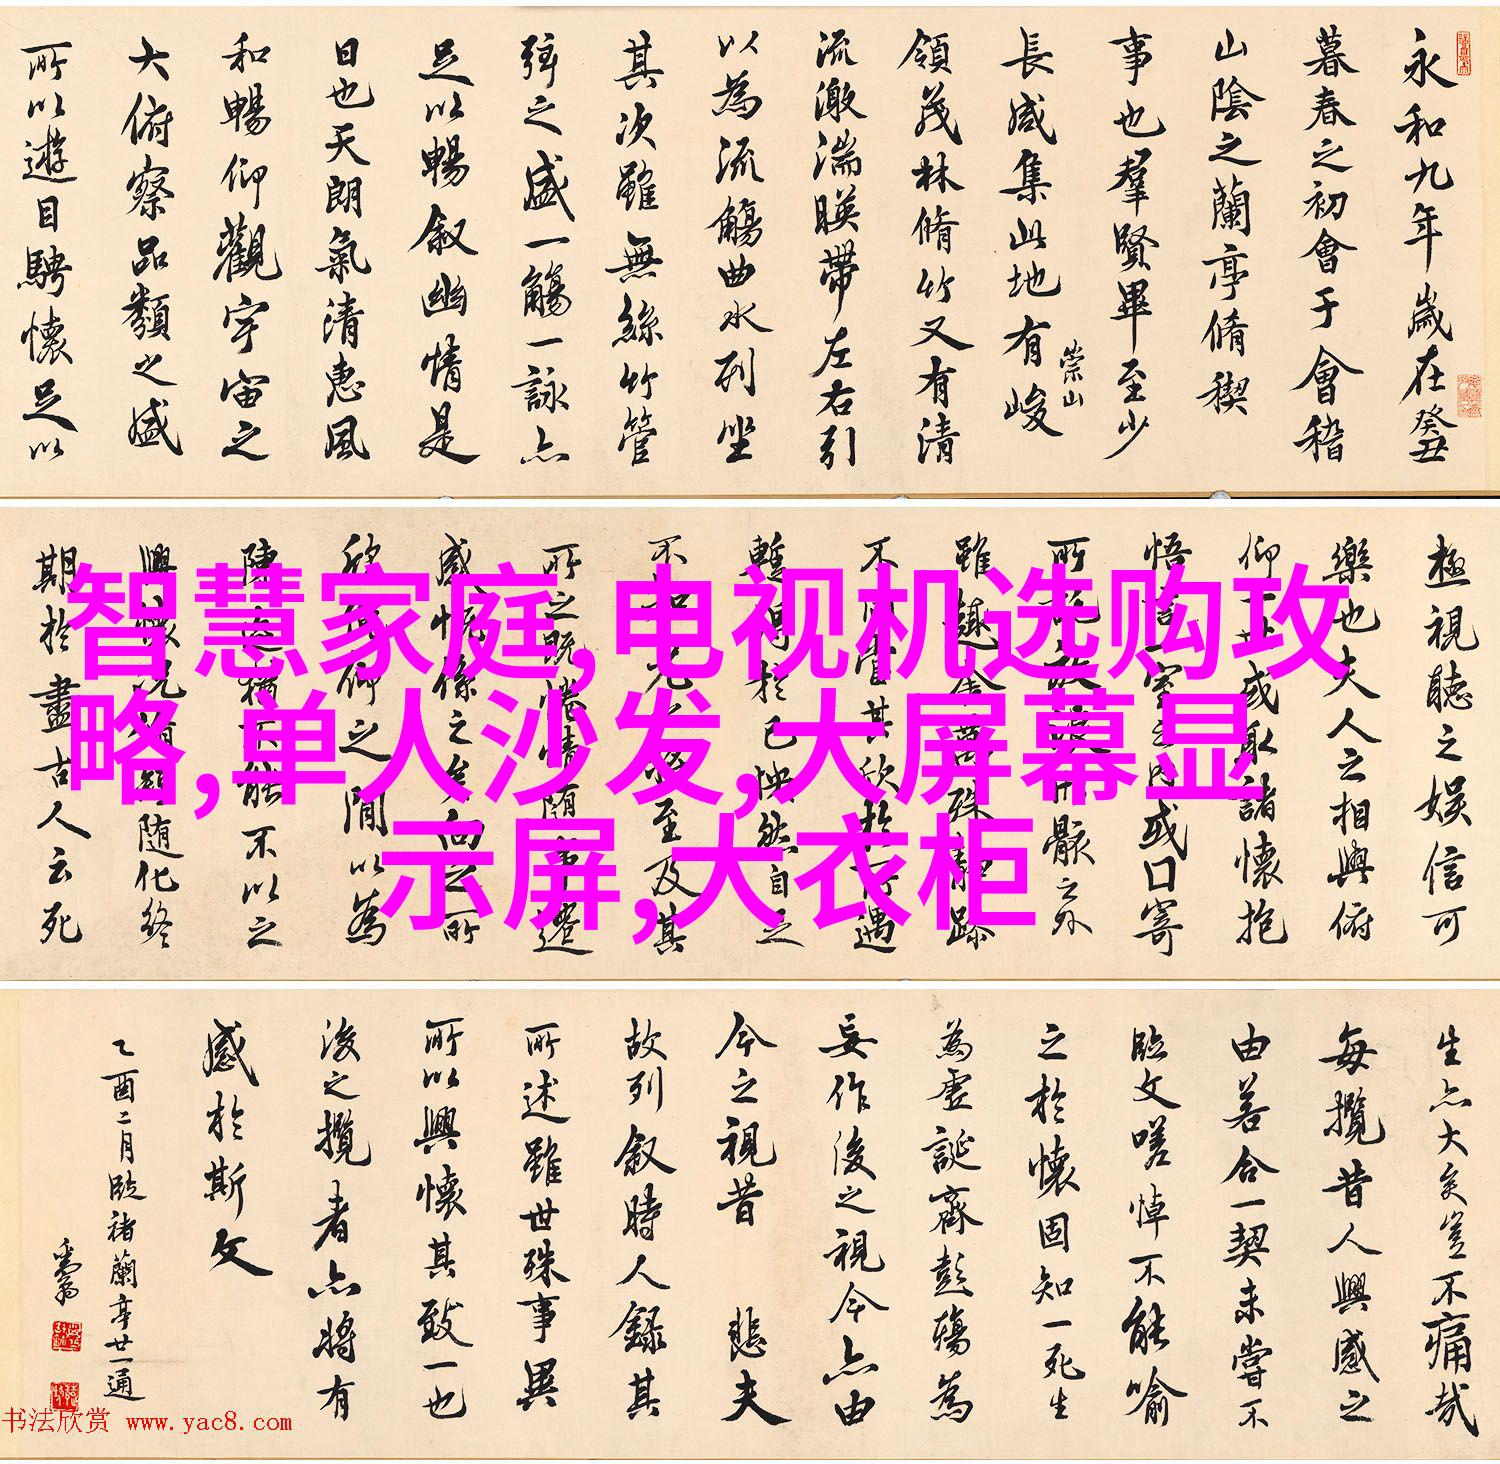 永和九年歲在癸丑
暮春之初會于會稽
山陰之蘭亭脩稧
事也羣賢畢至少
長咸集此地有崇山峻
領茂林脩竹又有清
流激湍暎帶左右引
以為流觴曲水列坐
其次雖無絲竹管
弦之盛一觴一詠亦
足以暢叙幽情是
日也天朗氣清惠風
和暢仰觀宇宙之
大俯察品類之盛
所以遊目騁懷足以
極視聽之娛信可
樂也夫人之相與俯
仰一世或取諸懷抱
悟言一室之內或口寄
所託放浪形骸之外
雖趣舍萬殊靜躁
不同當其欣於所遇
暫得於己怏然自足
不知老之將至及其
所之既惓情隨事遷
感慨係之矣向之所
欣俛仰之間以為
陳迹猶不能不以之
興懷況脩短隨化終
期於盡古人云死
智慧家庭,电视机选购攻
略,单人沙发,大屏幕显
示屏,大衣柜
生亦大矣豈不痛哉
每攬昔人興感之
由若合一契未嘗不
臨文嗟悼不能喻
之於懷固知一死生
為虛誕齊彭殤為
妄作後之視今亦由
今之視昔 悲夫
故列叙時人錄其
所述雖世殊事異
所以興懷其致一也
後之攬者亦將有
感於斯文
乙酉二月臨褚蘭亭廿一通
书法欣赏 www.yac8.com